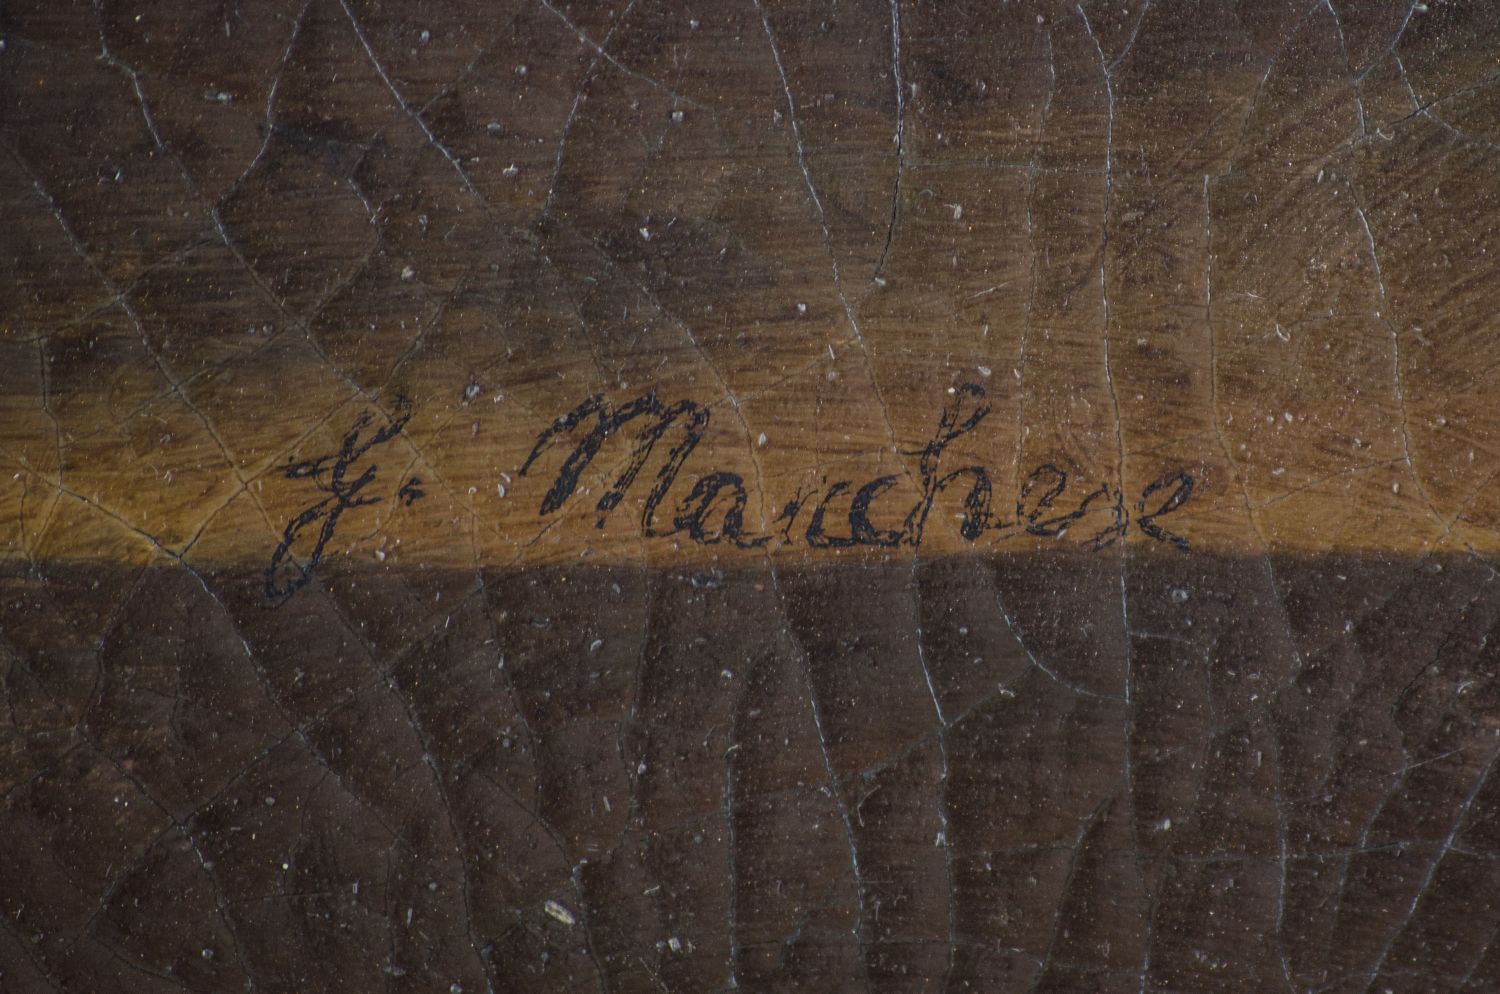 G. Marchese